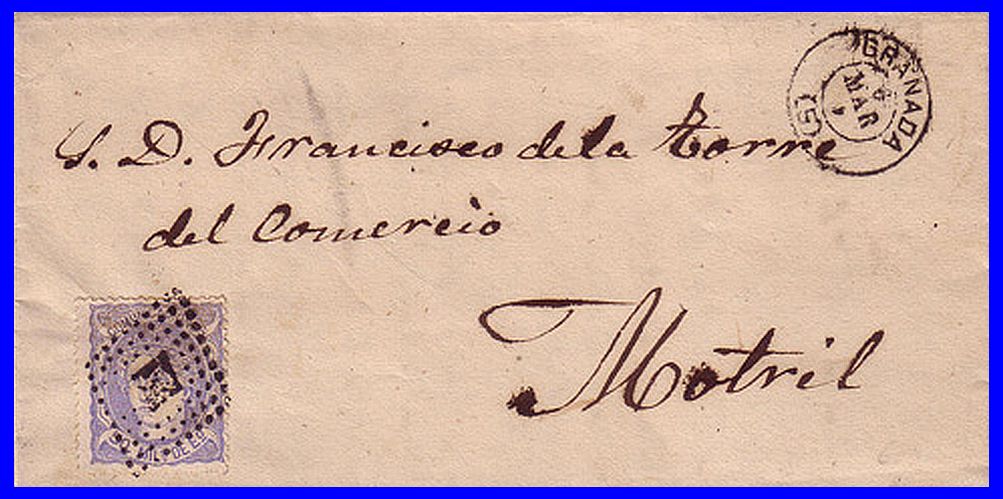 GRANADA
6
MAR
(5)
S. D. Francisco de la Torre
del Comercio
Motril
COMUN
50 MILS DE E